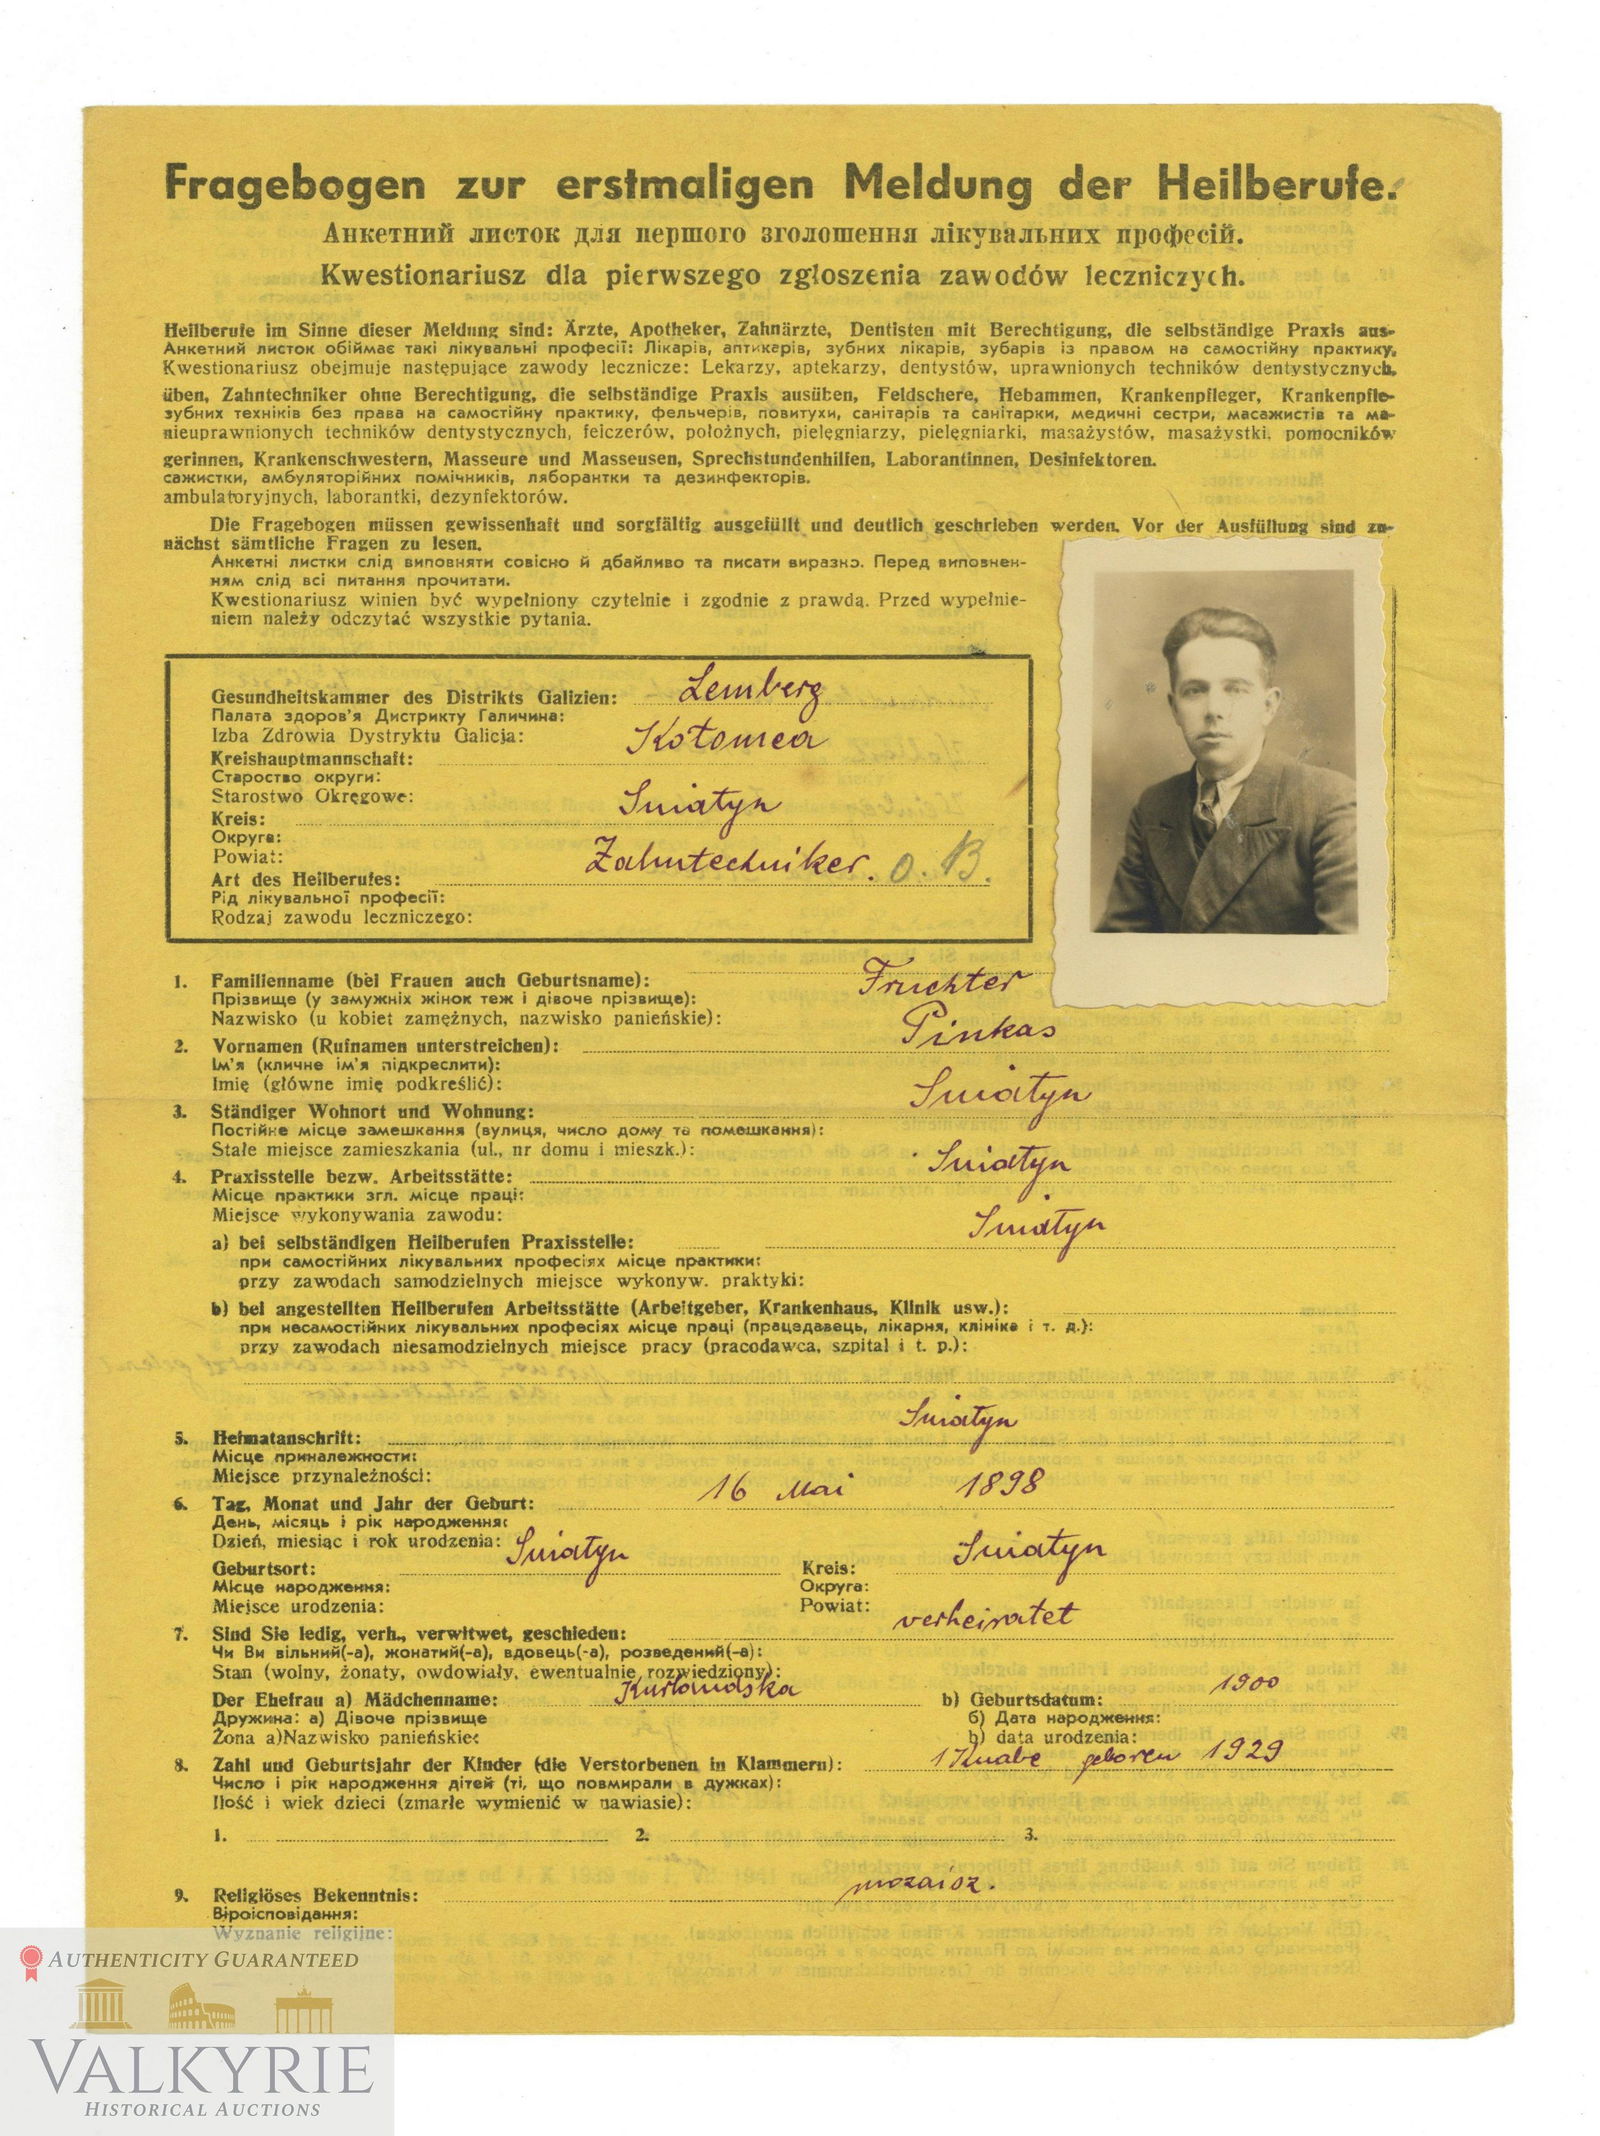 Fragebogen zur erstmaligen Meldung der Heilberufe.
Анкетний листок для першого зголошення лікувальних професій.
Kwestionariusz dla pierwszego zgłoszenia zawodów leczniczych.
Heilberufe im Sinne dieser Meldung sind: Ärzte, Apotheker, Zahnärzte, Dentisten mit Berechtigung, die selbständige Praxis aus-
Анкетний листок обіймає такі лікувальні професії: Лікарів, аптикарів, зубних лікарів, зубарів із правом на самостійну практику,
Kwestionariusz obejmuje następujące zawody lecznicze: Lekarzy, aptekarzy, dentystów, uprawnionych techników dentystycznych,
üben, Zahntechniker ohne Berechtigung, die selbständige Praxis ausüben, Feldschere, Hebammen, Krankenpfleger, Krankenpfle-
зубних техніків без права на самостійну практику, фельчерів, повитухи, санітарів та санітарки, медичні сестри, масажистів та ма-
nieuprawnionych techników dentystycznych, felczerów, położnych, pielęgniarzy, pielęgniarki, masażystów, masażystki, pomocników
gerinnen, Krankenschwestern, Masseure und Masseusen, Sprechstundenhilfen, Laborantinnen, Desinfektoren.
сажистки, амбуляторійних помічників, ляборантки та дезинфекторів.
ambulatoryjnych, laborantki, dezynfektorów.
Die Fragebogen müssen gewissenhaft und sorgfältig ausgefüllt und deutlich geschrieben werden. Vor der Ausfüllung sind zu-
nächst sämtliche Fragen zu lesen.
Анкетні листки слід виповняти совісно й дбайливо та писати виразно. Перед виповнен-
ням слід всі питання прочитати.
Kwestionariusz winien być wypełniony czytelnie i zgodnie z prawdą. Przed wypełnie-
niem należy odczytać wszystkie pytania.
Gesundheitskammer des Distrikts Galizien: Lemberg
Палата здоров'я Дистрикту Галичина:
Izba Zdrowia Dystryktu Galicja:
Kreishauptmannschaft: Kołomea
Староство округи:
Starostwo Okręgowe:
Kreis: Sniatyn
Округа:
Powiat:
Art des Heilberufes: Zahntechniker. o. B.
Рід лікувальної професії:
Rodzaj zawodu leczniczego:
1. Familienname (bei Frauen auch Geburtsname): Fruchter
Прізвище (у замужніх жінок теж і дівоче прізвище):
Nazwisko (u kobiet zamężnych, nazwisko panieńskie):
2. Vornamen (Rufnamen unterstreichen): Pinkas
Ім'я (кличне ім'я підкреслити):
Imię (główne imię podkreślić):
3. Ständiger Wohnort und Wohnung: Sniatyn
Постійне місце замешкання (вулиця, число дому та помешкання):
Stałe miejsce zamieszkania (ul., nr domu i mieszk.):
4. Praxisstelle bezw. Arbeitsstätte: Sniatyn
Місце практики згл. місце праці:
Miejsce wykonywania zawodu:
a) bei selbständigen Heilberufen Praxisstelle: Sniatyn
при самостійних лікувальних професіях місце практики:
przy zawodach samodzielnych miejsce wykonyw. praktyki:
b) bei angestellten Heilberufen Arbeitsstätte (Arbeitgeber, Krankenhaus, Klinik usw.):
при несамостійних лікувальних професіях місце праці (працедавець, лікарня, клініка і т. д.):
przy zawodach niesamodzielnych miejsce pracy (pracodawca, szpital i t. p.):
5. Heimatanschrift: Sniatyn
Місце приналежности:
Miejsce przynależności:
6. Tag, Monat und Jahr der Geburt: 16 Mai 1898
День, місяць і рік народження:
Dzień, miesiąc i rok urodzenia:
Geburtsort: Sniatyn Kreis: Sniatyn
Місце народження: Округа:
Miejsce urodzenia: Powiat:
7. Sind Sie ledig, verh., verwitwet, geschieden: verheiratet
Чи Ви вільний(-а), жонатий(-а), вдовець(-а), розведений(-а):
Stan (wolny, żonaty, owdowiały, ewentualnie rozwiedziony):
Der Ehefrau a) Mädchenname: b) Geburtsdatum: 1900
Дружина: а) Дівоче прізвище б) Дата народження:
Żona a)Nazwisko panieńskie: b) data urodzenia:
8. Zahl und Geburtsjahr der Kinder (die Verstorbenen in Klammern): 1 Knabe geboren 1929
Число і рік народження дітей (ті, що повмирали в дужках):
Ilość i wiek dzieci (zmarłe wymienić w nawiasie):
1. 2. 3.
9. Religiöses Bekenntnis: mozaisz.
Віроісповідання:
Wyznanie religijne:
AUTHENTICITY GUARANTEED
VALKYRIE
HISTORICAL AUCTIONS